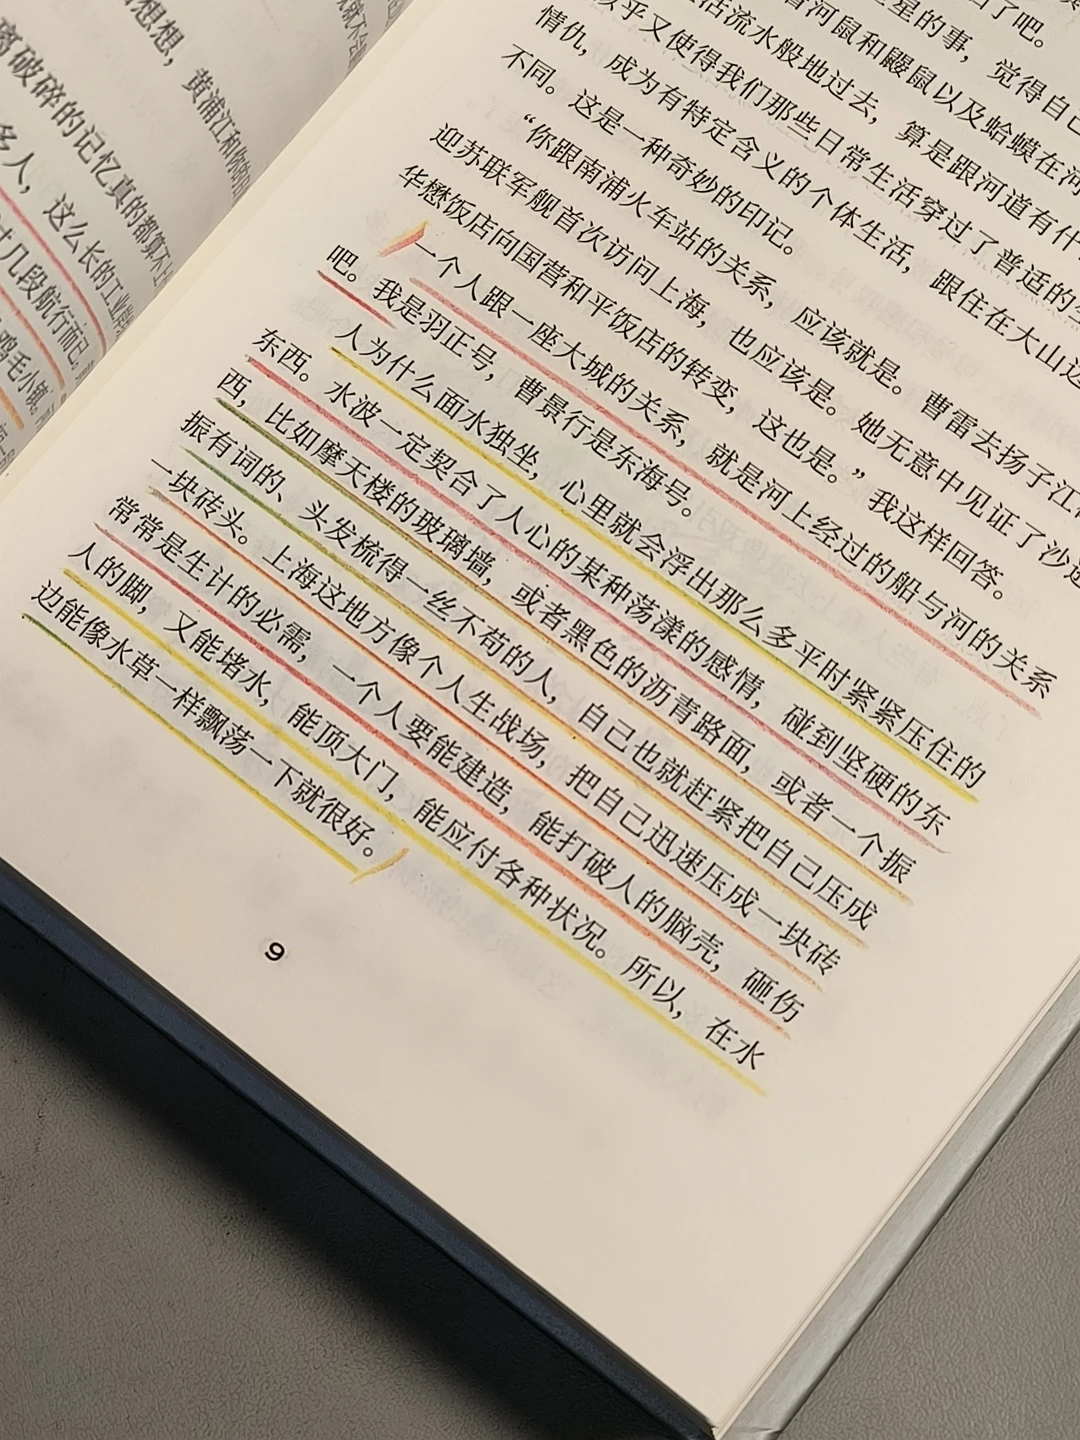 想想，黄浦江和你的
离破碎的记忆真的都算不上
多人，这么长的工业
过几段航行而已。
鸡毛小镇。
我就不会
了吧。
星的事，觉得自己
河鼠和鼹鼠以及蛤蟆在河
活流水般地过去，算是跟河道有什
似乎又使得我们那些日常生活穿过了普适的
情仇，成为有特定含义的个体生活，跟住在大山边
不同。这是一种奇妙的印记。
“你跟南浦火车站的关系，应该就是。曹雷去扬子江
迎苏联军舰首次访问上海，也应该是。她无意中见证了沙逊
华懋饭店向国营和平饭店的转变，这也是。”我这样回答。
一个人跟一座大城的关系，就是河上经过的船与河的关系
吧。我是羽正号，曹景行是东海号。
人为什么面水独坐，心里就会浮出那么多平时紧紧压住的
东西。水波一定契合了人心的某种荡漾的感情，碰到坚硬的东
西，比如摩天楼的玻璃墙，或者黑色的沥青路面，或者一个振
振有词的、头发梳得一丝不苟的人，自己也就赶紧把自己压成
一块砖头。上海这地方像个人生战场，把自己迅速压成一块砖
常常是生计的必需，一个人要能建造，能打破人的脑壳，砸伤
人的脚，又能堵水，能顶大门，能应付各种状况。所以，在水
边能像水草一样飘荡一下就很好。
9